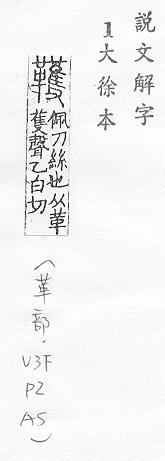 説文解字
1大徐本
韄
佩刀絲也从革
蒦聲乙白切
（革部．V3F P2 A5）